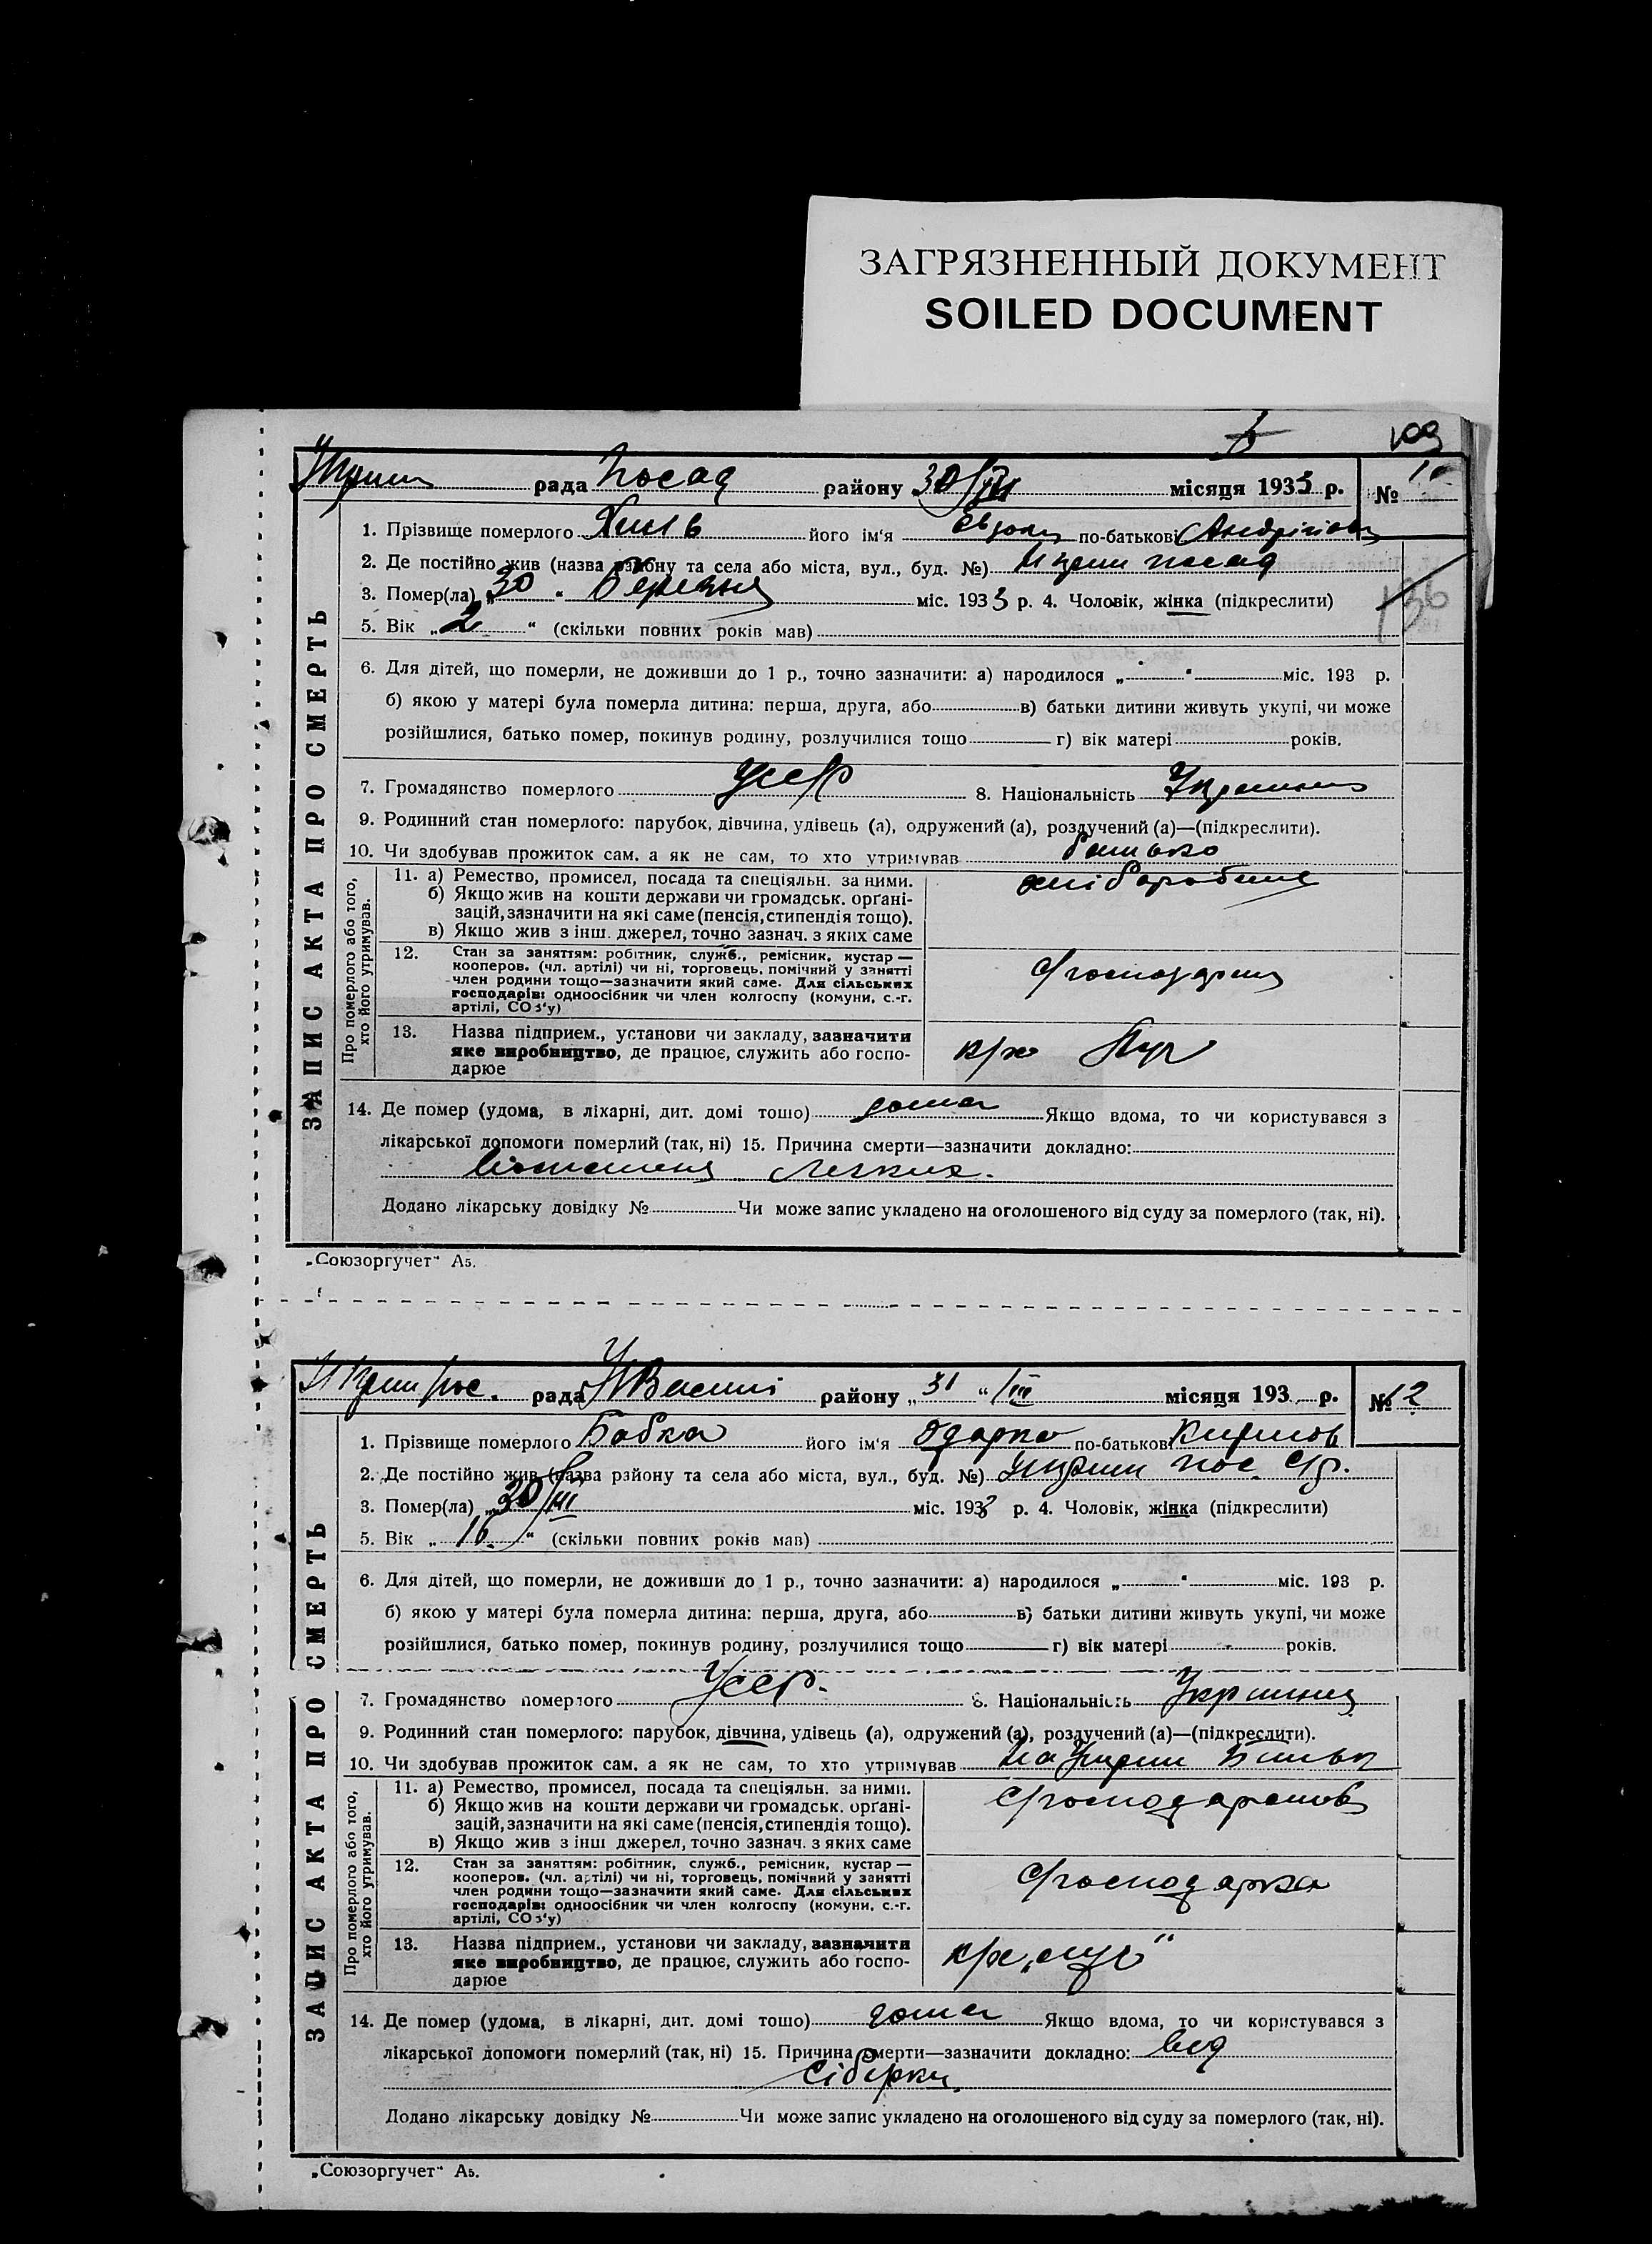 ЗАГРЯЗНЕННЫЙ ДОКУМЕНТ
SOILED DOCUMENT
109
рада Посад району 30/III місяця 1933 р. №
1. Прізвище померлого його ім'я по-батькові
2. Де постійно жив (назва району та села або міста, вул., буд. №) посад
3. Помер(ла) „30" Березня міс. 1933 р. 4. Чоловік, жінка (підкреслити)
136
5. Вік „2" (скільки повних років мав)
6. Для дітей, що померли, не доживши до 1 р., точно зазначити: а) народилося „ " міс. 193 р.
б) якою у матері була померла дитина: перша, друга, або в) батьки дитини живуть укупі, чи може
розійшлися, батько помер, покинув родину, розлучилися тощо г) вік матері років.
7. Громадянство померлого УССР 8. Національність
9. Родинний стан померлого: парубок, дівчина, удівець (а), одружений (а), розлучений (а)—(підкреслити).
10. Чи здобував прожиток сам, а як не сам, то хто утримував батько
Про померлого або того, хто його утримував.
11. а) Ремество, промисел, посада та спеціяльн. за ними. хліборобство
б) Якщо жив на кошти держави чи громадськ. органі-
зацій, зазначити на які саме (пенсія, стипендія тощо).
в) Якщо жив з інш. джерел, точно зазнач. з яких саме
12. Стан за заняттям: робітник, служб., ремісник, кустар —
кооперов. (чл. артілі) чи ні, торговець, помічний у занятті
член родини тощо—зазначити який саме. Для сільських
господарів: одноосібник чи член колгоспу (комуни, с.-г.
артілі, СОЗ'у)
13. Назва підприєм., установи чи закладу, зазначити
яке виробництво, де працює, служить або госпо-
дарює
14. Де помер (удома, в лікарні, дит. домі тощо) дома Якщо вдома, то чи користувався з
лікарської допомоги померлий (так, ні) 15. Причина смерти—зазначити докладно:
легких.
Додано лікарську довідку № Чи може запис укладено на оголошеного від суду за померлого (так, ні).
ЗАПИС АКТА ПРО СМЕРТЬ
„Союзоргучет" А5.
рада району „31" III місяця 193 р. № 12
1. Прізвище померлого Бабка його ім'я Одарка по-батькові Кирилов
2. Де постійно жив (назва району та села або міста, вул., буд. №) пос.
3. Помер(ла) „30/III міс. 1933 р. 4. Чоловік, жінка (підкреслити)
5. Вік „16" (скільки повних років мав)
6. Для дітей, що померли, не доживши до 1 р., точно зазначити: а) народилося „ " міс. 193 р.
б) якою у матері була померла дитина: перша, друга, або в) батьки дитини живуть укупі, чи може
розійшлися, батько помер, покинув родину, розлучилися тощо г) вік матері років.
7. Громадянство померлого УССР. 8. Національність
9. Родинний стан померлого: парубок, дівчина, удівець (а), одружений (а), розлучений (а)—(підкреслити).
10. Чи здобував прожиток сам, а як не сам, то хто утримував на
Про померлого або того, хто його утримував.
11. а) Ремество, промисел, посада та спеціяльн. за ними.
б) Якщо жив на кошти держави чи громадськ. органі-
зацій, зазначити на які саме (пенсія, стипендія тощо).
в) Якщо жив з інш джерел, точно зазнач. з яких саме
12. Стан за заняттям: робітник, служб., ремісник, кустар —
кооперов. (чл. артілі) чи ні, торговець, помічний у занятті
член родини тощо—зазначити який саме. Для сільських
господарів: одноосібник чи член колгоспу (комуни, с.-г.
артілі, СОЗ'у)
13. Назва підприєм., установи чи закладу, зазначити
яке виробництво, де працює, служить або госпо-
дарює
14. Де помер (удома, в лікарні, дит. домі тощо) дома Якщо вдома, то чи користувався з
лікарської допомоги померлий (так, ні) 15. Причина смерти—зазначити докладно: від
сібірки
Додано лікарську довідку № Чи може запис укладено на оголошеного від суду за померлого (так, ні).
ЗАПИС АКТА ПРО СМЕРТЬ
„Союзоргучет" А5.